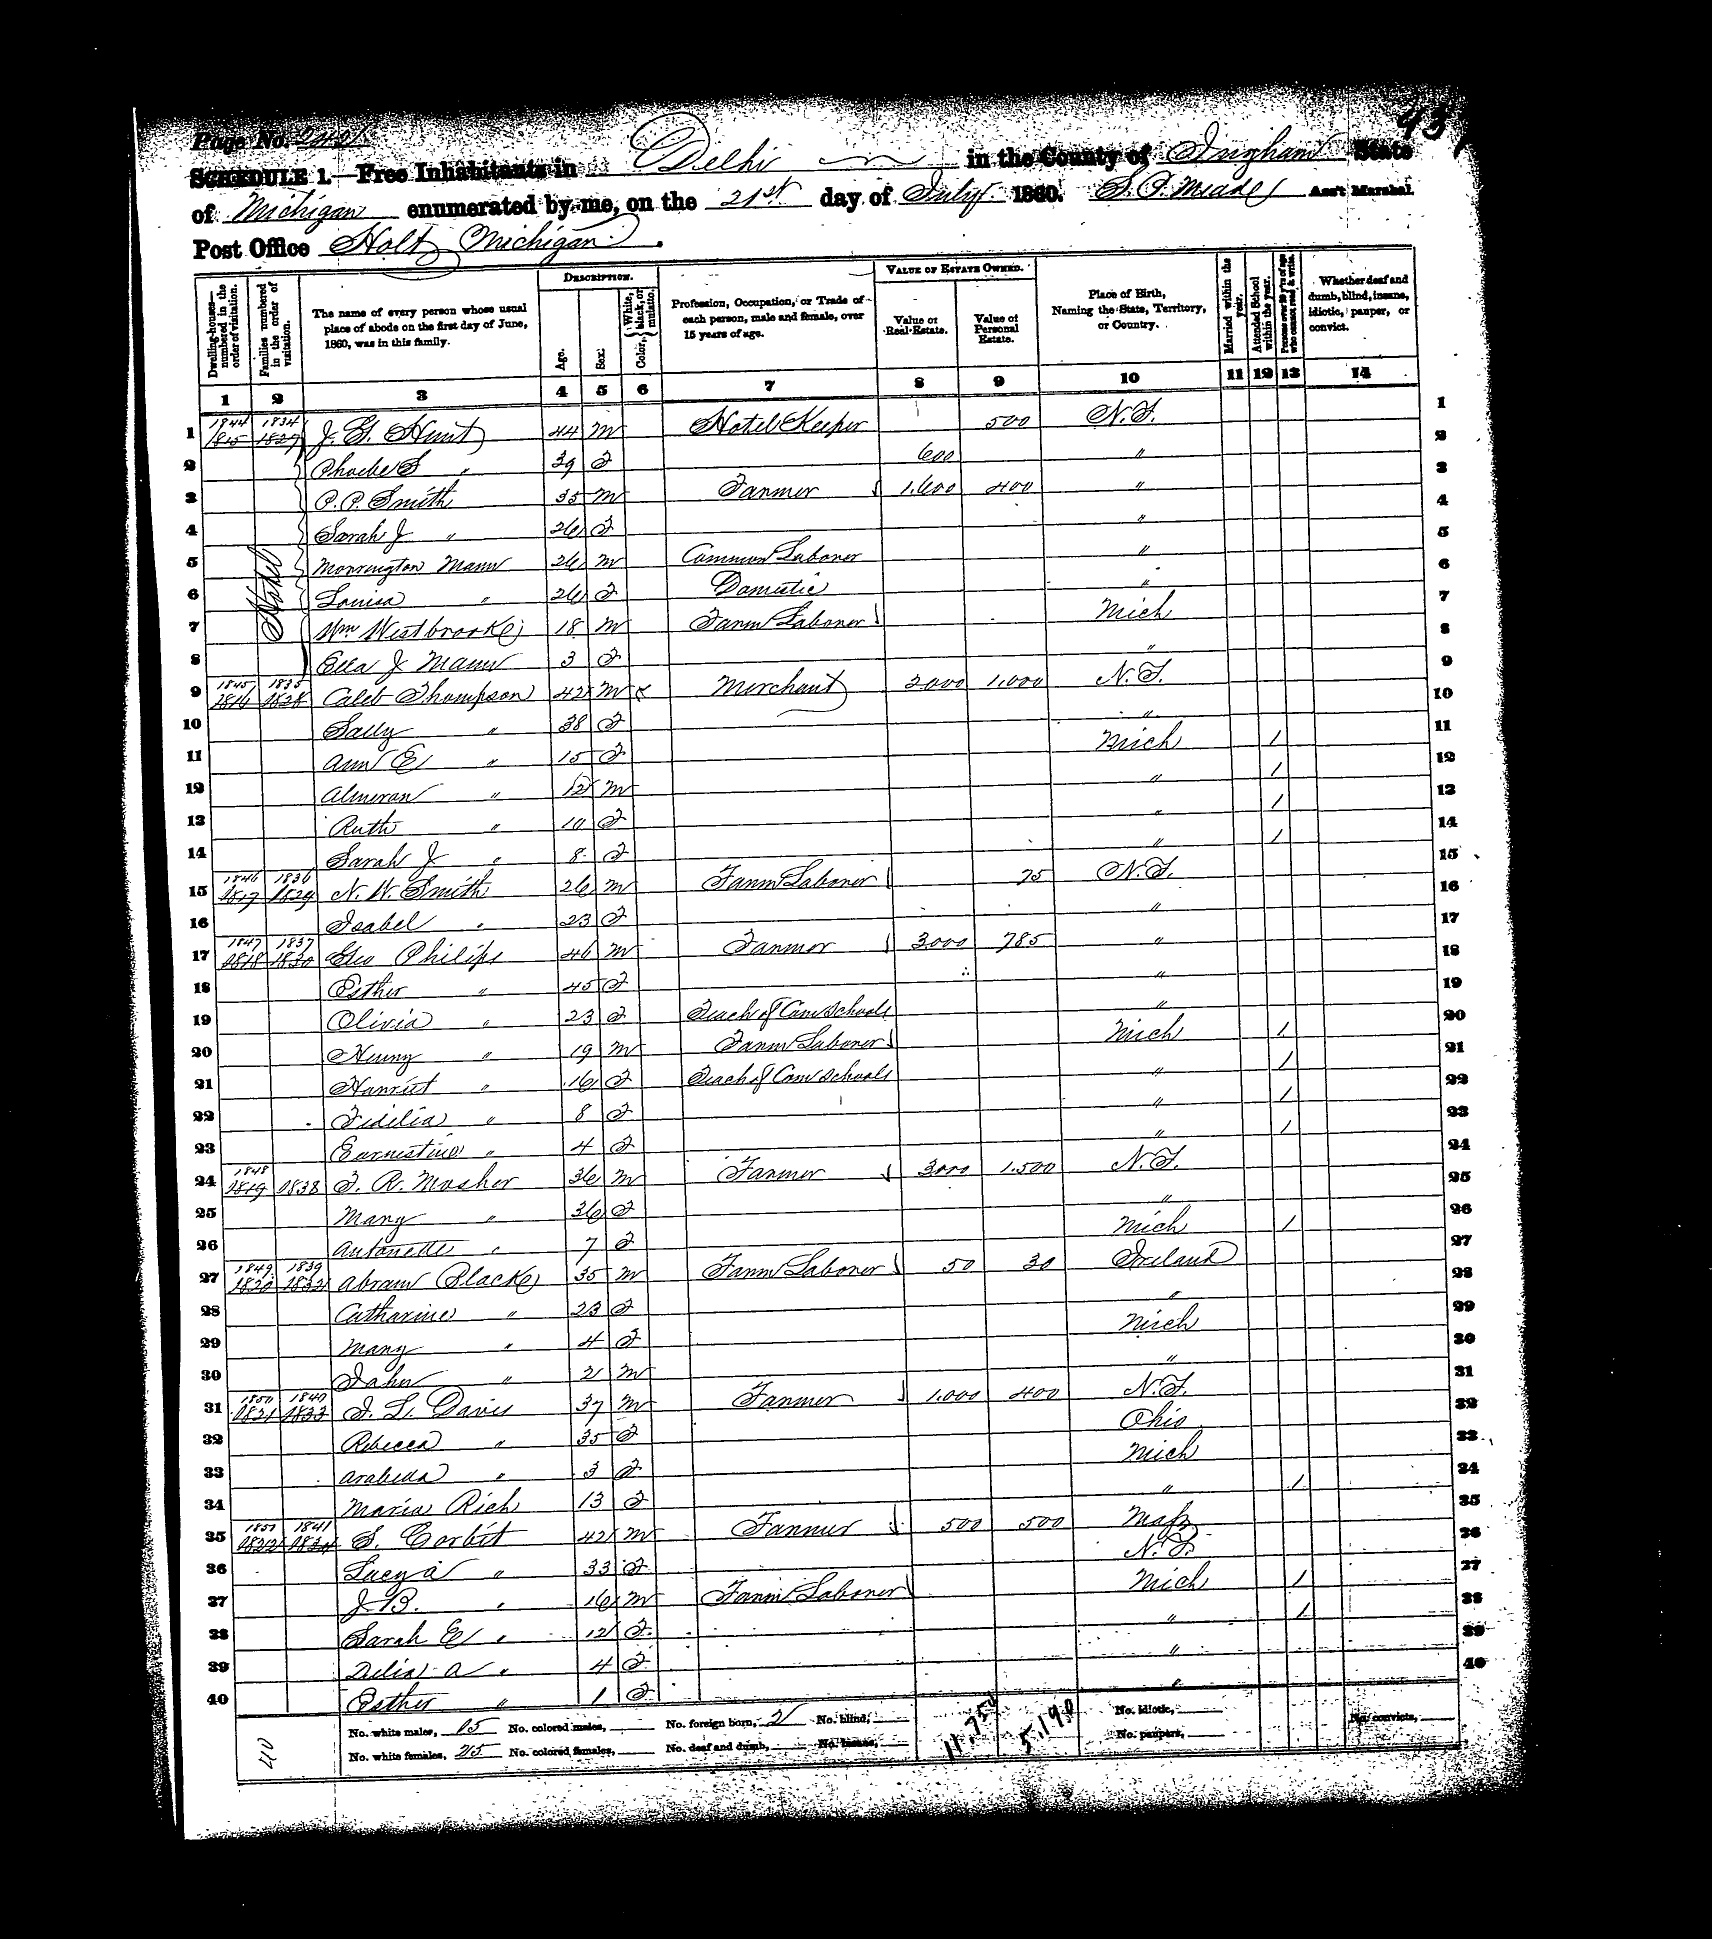 Page No. 242
43
SCHEDULE 1.—Free Inhabitants in Delhi in the County of Ingham State
of Michigan enumerated by me, on the 21st day of July 1860. S. P. Meade Ass't Marshal.
Post Office Holt Michigan.
Dwelling-houses—numbered in the order of visitation. Families numbered in the order of visitation. The name of every person whose usual place of abode on the first day of June, 1860, was in this family. DESCRIPTION. Age. Sex. Color, White, black, or mulatto. Profession, Occupation, or Trade of each person, male and female, over 15 years of age. VALUE OF ESTATE OWNED. Value of Real Estate. Value of Personal Estate. Place of Birth, Naming the State, Territory, or Country. Married within the year. Attended School within the year. Persons over 20 y'rs of age who cannot read & write. Whether deaf and dumb, blind, insane, idiotic, pauper, or convict.
1 2 3 4 5 6 7 8 9 10 11 12 13 14
1844 1834
1 1815 1827 J. G. Hunt 44 M Hotel Keeper 500 N.Y. 1
2 Phoebe S " 39 F 600 " 2
3 P. P. Smith 35 M Farmer 1,600 400 " 3
4 Sarah J " 26 F " 4
5 Hotel Monrington Mann 26 M Common Laborer " 5
6 Louisa " 26 F Domestic " 6
7 Wm Westbrook 18 M Farm Laborer Mich 7
8 Ella J Mann 3 F " 8
1845 1835
9 1816 1828 Caleb Thompson 42 M Merchant 2000 1,000 N.Y. 9
10 Sally " 38 F " 10
11 Ann E " 15 F Mich 1 11
12 Almeran " 12 M " 1 12
13 Ruth " 10 F " 1 13
14 Sarah J " 8 F " 1 14
1846 1836
15 1817 1829 N. W. Smith 26 M Farm Laborer 75 N.Y. 15
16 Isabel " 23 F " 16
1847 1837
17 1818 1830 Geo Philips 46 M Farmer 3000 785 " 17
18 Esther " 45 F " 18
19 Olivia " 23 F Teach of Com Schools " 19
20 Henry " 19 M Farm Laborer Mich 1 20
21 Harriet " 16 F Teach of Com Schools " 1 21
22 Fidelia " 8 F " 1 22
23 Earnestine " 4 F " 1 23
1848
24 1819 1838 F. R. Mosher 36 M Farmer 3000 1.500 N.Y. 24
25 Mary " 36 F " 25
26 Antonette " 7 F Mich 1 26
1849 1839
27 1820 1832 Abram Black 35 M Farm Laborer 50 30 Ireland 27
28 Catharine " 23 F " 28
29 Mary " 4 F Mich 29
30 John " 2 M " 30
1850 1840
31 1821 1833 J. L. Davis 37 M Farmer 1.000 400 N.Y. 31
32 Rebecca " 35 F Ohio 32
33 Arabella " 3 F Mich 33
34 Maria Rich 13 F " 1 34
1851 1841
35 1822 1834 S. Corbit 42 M Farmer 500 500 Mass 35
36 Lucy A " 33 F N.Y. 36
37 J B. " 16 M Farm Laborer Mich 1 37
38 Sarah E " 12 F " 1 38
39 Delia A " 4 F " 39
40 Esther " 1 F " 40
40 No. white males, 15 No. colored males, No. foreign born, 2 No. blind, 11.750 5.190 No. idiotic, No. convicts,
No. white females, 25 No. colored females, No. deaf and dumb, No. insane, No. paupers,